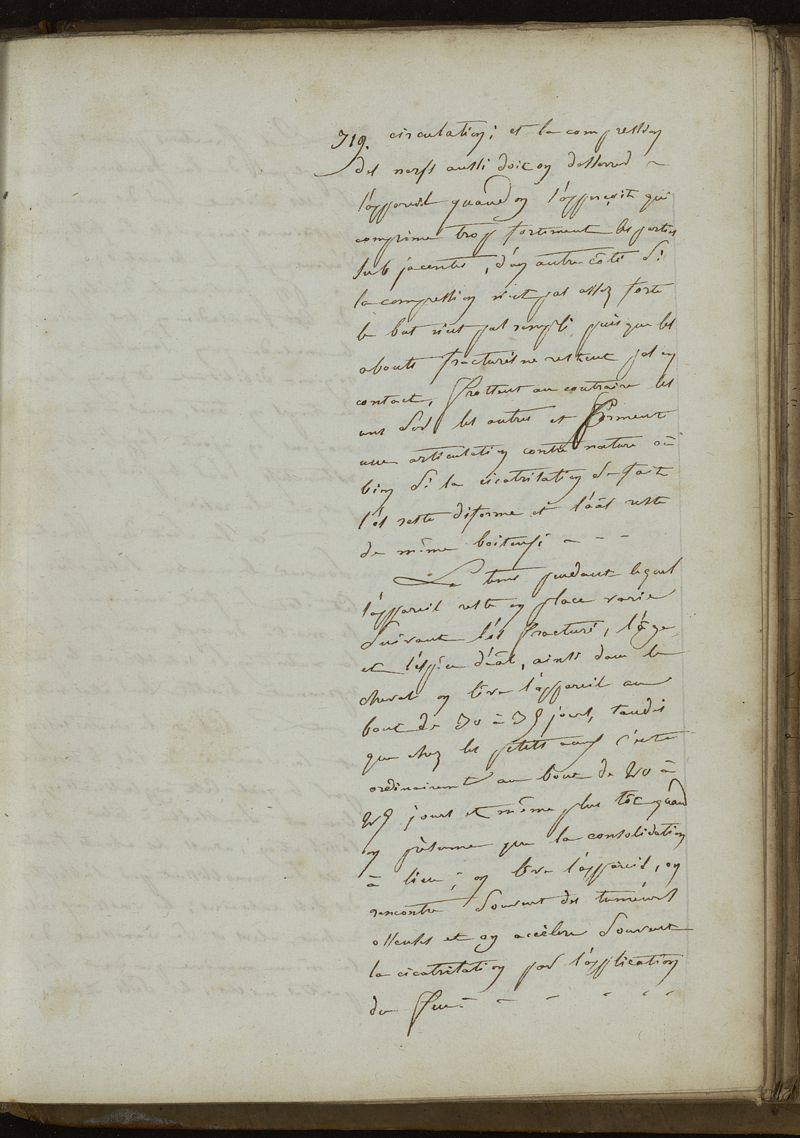 319. circulation; et la compression
des nerfs aussi doit on desserrer
l'appareil quand on l'apperçoit qui
comprime trop fortement les parties
sub jacentes, d'un autre côté si
la compression n'est pas assez forte
le but n'est pas rempli puis que les
abouts fracturés ne restent pas en
contact, frottent au contraire les
uns sur les autres et forment
une articulation contre nature où
bien si la cicatrisation se fait
l'os reste diforme et l'aâl reste
de même boiteux
Le tems pendant lequel
l'appareil reste en place varie
suivant l'os fracturé, l'âge
et l'espèce d'aâl, ainsi dans le
cheval on lève l'appareil au
bout de 30 à 35 jours, tandis
que chez les petits c'est
ordinairement au bout de 20 à
25 jours et même plus tôt quand
on présume que la consolidation
à lieu; on lève l'appareil, on
rencontre souvent des tumeurs
osseuses et on accélère souvent
la cicatrisation par l'application
du feu